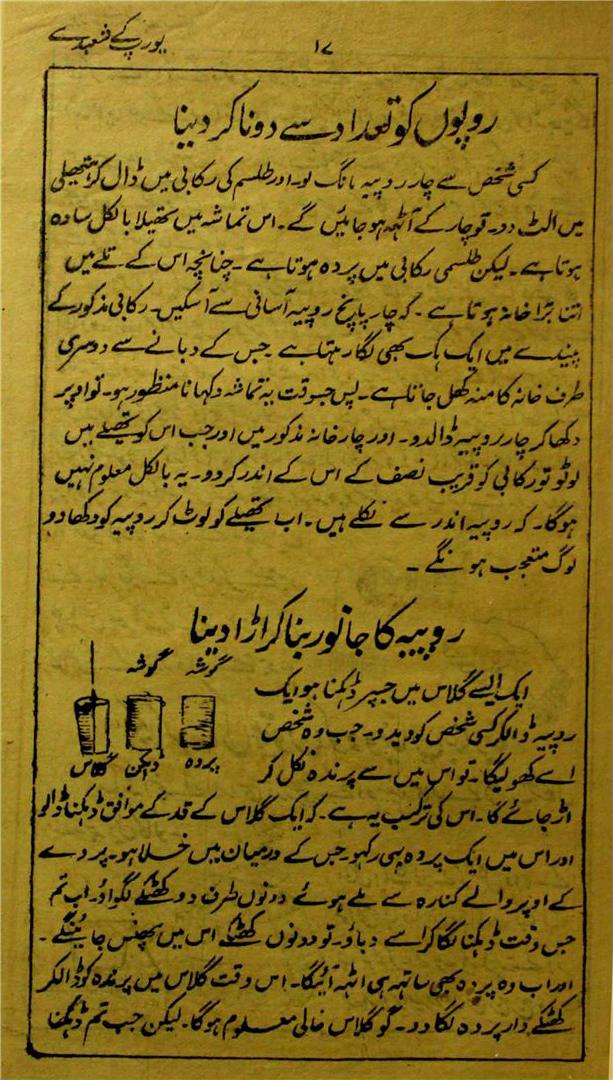 یورپ کے شعبدے
۱۷
روپوں کو تعداد سے دونا کر دینا
کسی شخص سے چار روپیہ مانگ لو۔ اور طلسم کی رکابی میں ڈال کر ہتھیلی
میں الٹ دو۔ تو چار کے آٹھہ ہو جائیں گے۔ اس تماشہ میں تھیلا بالکل سادہ
ہوتا ہے۔ لیکن طلسمی رکابی میں پردہ ہوتا ہے۔ چنانچہ اس کے تلے میں
اتنا بڑا خانہ ہوتا ہے۔ کہ چار پانچ روپیہ آسانی سے آ سکیں۔ رکابی مذکور کے
پیندے میں ایک ہک بھی لگا رہتا ہے۔ جس کے دبانے سے دوسری
طرف خانہ کا منہ کھل جاتا ہے۔ پس جسوقت یہ تماشہ دکہانا منظور ہو۔ تو اوپر
دکھا کر چار روپیہ ڈالدو۔ اور چار خانہ مذکور میں اور جب اس کو تھیلے میں
لوٹو تو رکابی کو قریب نصف کے اس کے اندر کر دو۔ یہ بالکل معلوم نہیں
ہوگا۔ کہ روپیہ اندر سے نکلے ہیں۔ اب تھیلے کو لوٹ کر روپیہ کو دکھا دو
لوگ متعجب ہونگے۔
روپیہ کا جانور بنا کر اڑا دینا
گوشہ گوشہ
ایک ایسے گلاس میں جسپر ڈہکنا ہو ایک
روپیہ ڈالکر کسی شخص کو دیدو۔ جب وہ شخص
اسے کھولیگا۔ تو اس میں سے پرندہ نکل کر
پردہ ڈہکن گلاس
اڑ جائے گا۔ اس کی ترکیب یہ ہے۔ کہ ایک گلاس کے قد کے موافق ڈہکنا ڈالو
اور اس میں ایک پردہ بھی رکہو جس کے درمیان میں خلا ہو۔ پردے
کے اوپر والے کنارہ سے ملے ہوئے دونوں طرف دو کھٹکے لگواؤ۔ اب تم
جس وقت ڈہکنا لگا کر اسے دباؤ۔ تو دونوں کھٹکے اس میں پھنس جائینگے۔
اور اب وہ پردہ بھی ساتھہ ہی اٹہہ آئیگا۔ اس وقت گلاس میں پرندہ کو ڈالکر
کھٹکے دار پردہ لگا دو۔ گو گلاس خالی معلوم ہوگا۔ لیکن جب تم ڈہکنا